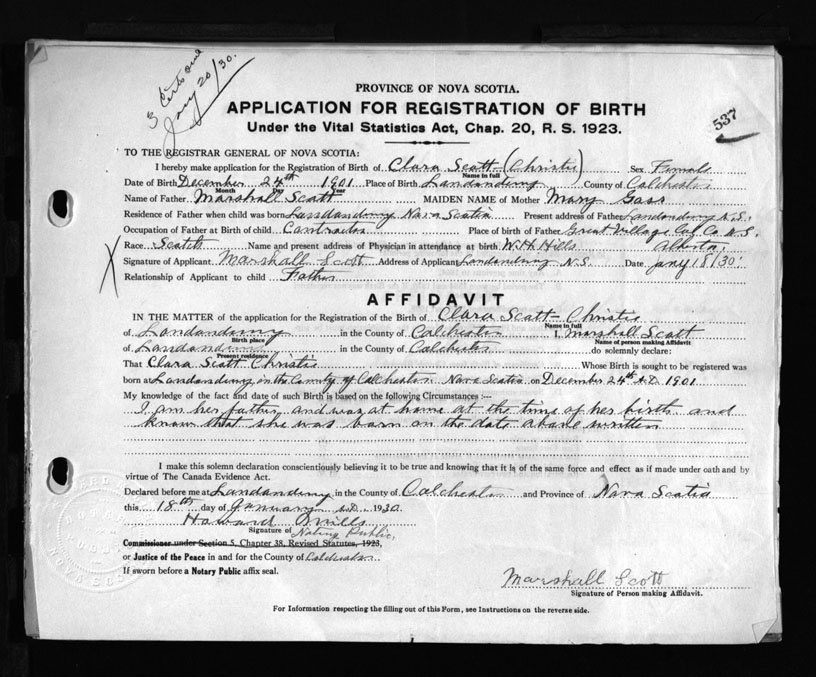 3 Certs and
Jany 20/30.
537
PROVINCE OF NOVA SCOTIA.
APPLICATION FOR REGISTRATION OF BIRTH
Under the Vital Statistics Act, Chap. 20, R. S. 1923.
TO THE REGISTRAR GENERAL OF NOVA SCOTIA:
I hereby make application for the Registration of Birth of Clara Scott (Christie) Sex Female
Name in full
Date of Birth December 24th 1901 Place of Birth Londonderry County of Colchester
Month Day Year
Name of Father Marshall Scott MAIDEN NAME of Mother Mary Gass
Residence of Father when child was born Londonderry Nova Scotia Present address of Father Londonderry N.S.
Occupation of Father at Birth of child Contractor Place of birth of Father Great Village Col. Co N.S.
Race Scotch Name and present address of Physician in attendance at birth W.H. Hills Alberta.
Signature of Applicant Marshall Scott Address of Applicant Londonderry N.S. Date Jany 18/30.
Relationship of Applicant to child Father
AFFIDAVIT
IN THE MATTER of the application for the Registration of the Birth of Clara Scott Christie
Name in full
of Londonderry in the County of Colchester I, Marshall Scott
Birth place Name of person making Affidavit
of Londonderry in the County of Colchester do solemnly declare:
Present residence
That Clara Scott Christie Whose Birth is sought to be registered was
born at Londonderry in the County of Colchester Nova Scotia on December 24th A.D. 1901
My knowledge of the fact and date of such Birth is based on the following Circumstances :—
I am her father and was at home at the time of her birth and
know that she was born on the date above written
I make this solemn declaration conscientiously believing it to be true and knowing that it is of the same force and effect as if made under oath and by
virtue of The Canada Evidence Act.
Declared before me at Londonderry in the County of Colchester and Province of Nova Scotia
this 18th day of January A.D. 1930.
Howard
Signature of Notary Public,
Commissioner under Section 5, Chapter 38, Revised Statutes, 1923,
or Justice of the Peace in and for the County of Colchester
If sworn before a Notary Public affix seal.
Marshall Scott
Signature of Person making Affidavit.
For Information respecting the filling out of this Form, see Instructions on the reverse side.